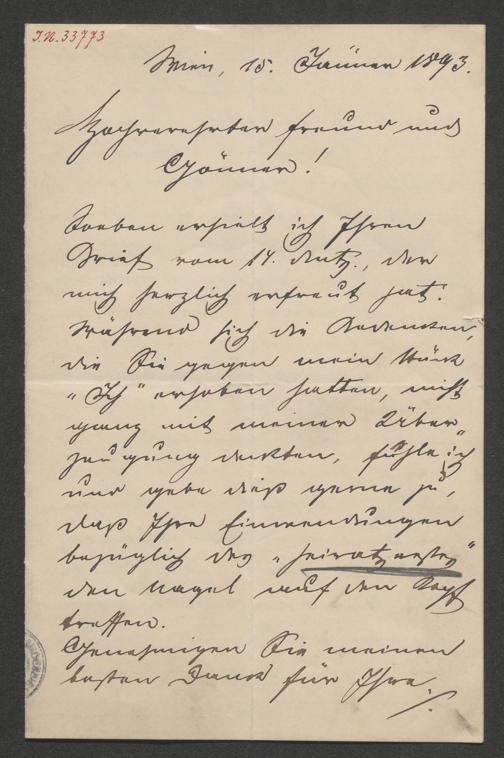 I.N. 33773
Wien, 15. Jänner 1893.
Hochverehrter Freund und
Gönner!
Soeben erhielt ich Ihren
Brief vom 14. dMtz., der
mich herzlich erfreut hat.
Während sich die Bedenken,
die Sie gegen mein Stück
"Ich" erhoben hatten, nicht
ganz mit meiner Über-
zeugung deckten, fühle ich
und gebe dieß gerne zu,
daß Ihre Einwendungen
bezüglich des "Heiratsnestes"
den Nagel auf den Kopf
treffen.
Genehmigen Sie meinen
besten Dank für Ihre
./.